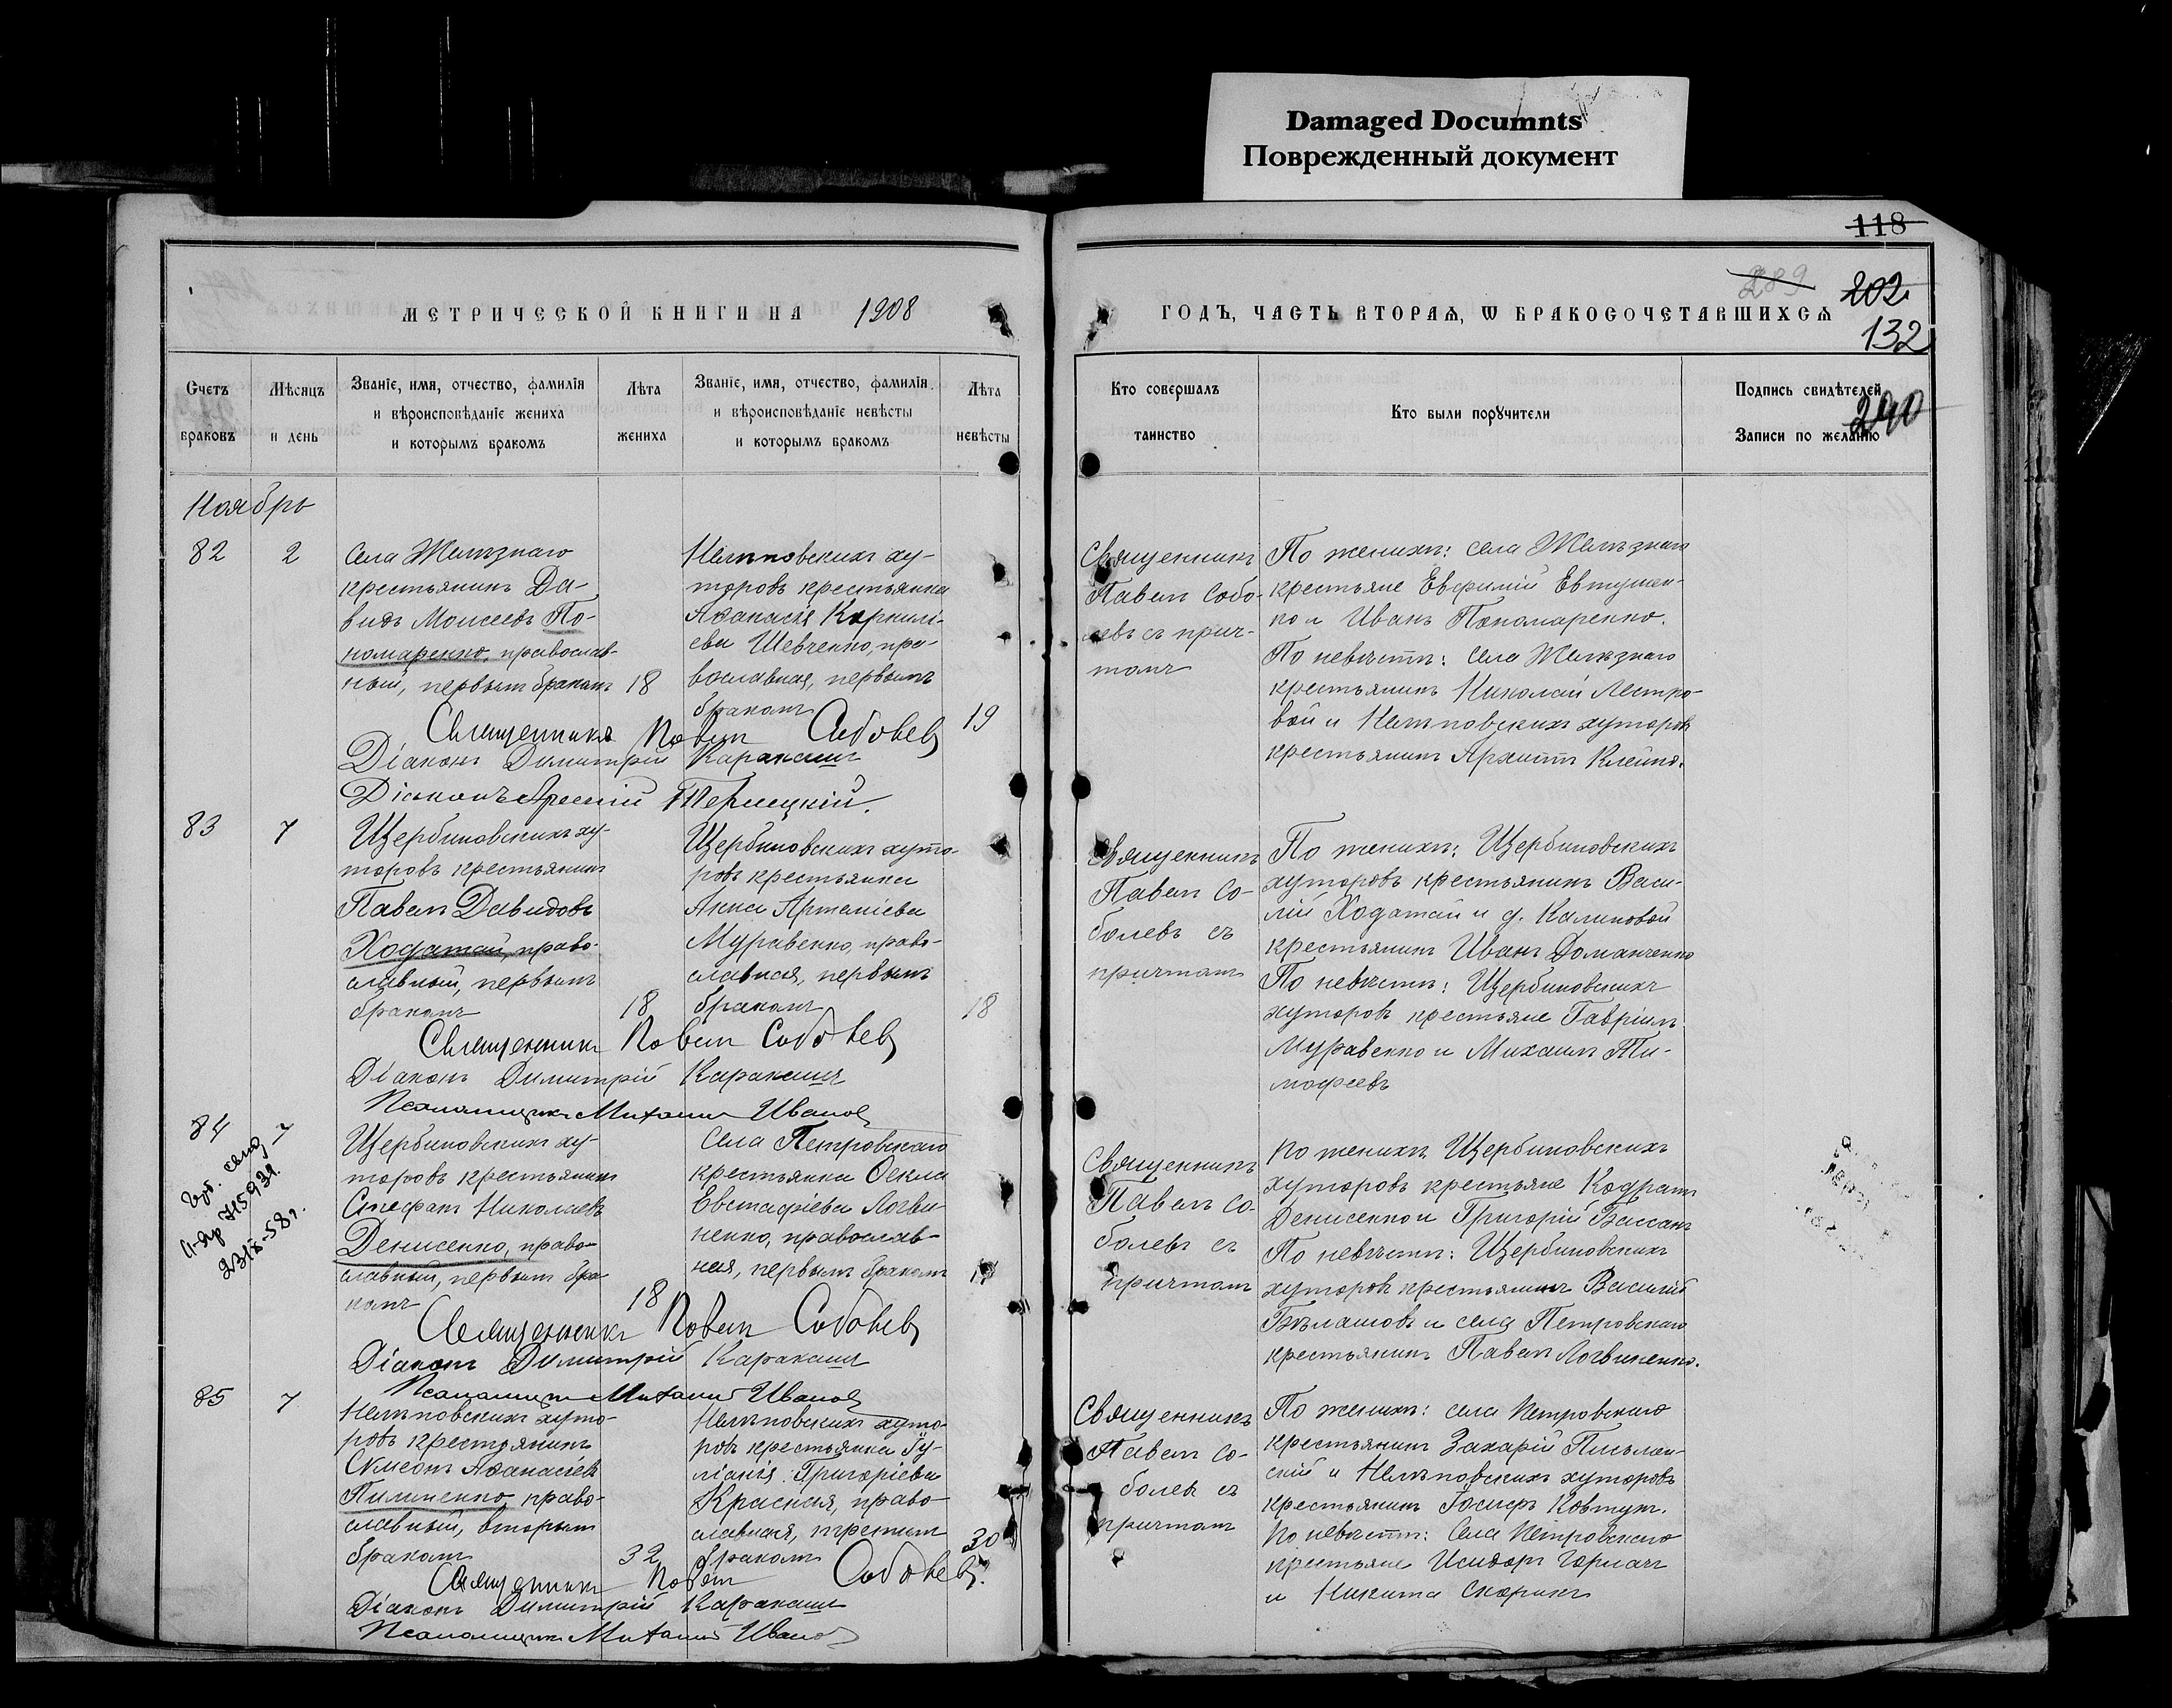 Damaged Documnts
Поврежденный документ
118
289
202
132
240
МЕТРИЧЕСКОЙ КНИГИ НА 1908
ГОДЪ, ЧАСТЬ ВТОРАЯ, Ѡ БРАКОСОЧЕТАВШИХСЯ
Счетъ браковъ
Мѣсяцъ и день
Званіе, имя, отчество, фамилія
и вѣроисповѣданіе жениха
и которымъ бракомъ
Лѣта жениха
Званіе, имя, отчество, фамилія
и вѣроисповѣданіе невѣсты
и которымъ бракомъ
Лѣта невѣсты
Кто совершалъ
таинство
Кто были порꙋчители
Подпись свидѣтелей
Записи по желанію
Ноябрь
82
2
Села Желѣзнаго
крестьянинъ Да-
видъ Моисеевъ По-
номаренко, православ-
ный, первымъ бракомъ
18
Нелѣповскихъ ху-
торовъ крестьянка
Аѳанасія Корнилі-
ева Шевченко, пра-
вославная, первымъ
бракомъ
19
Священникъ
Павелъ Собо-
левъ съ прич-
томъ
По женихѣ: села Желѣзнаго
крестьяне Евфимій Евтушен-
ко и Иванъ Пономаренко.
По невѣстѣ: села Желѣзнаго
крестьянинъ Николай Лестро-
вой и Нелѣповскихъ хуторовъ
крестьянинъ Архиппъ Клейно.
Священникъ Павелъ Соболевъ
Діаконъ Димитрій Каракашъ
Діаконъ Арсеній
83
7
Щербиновскихъ ху-
торовъ крестьянинъ
Павелъ Давидовъ
Ходатай, право-
славный, первымъ
бракомъ
18
Щербиновскихъ хуто-
ровъ крестьянка
Анна Артеміева
Муравенко, право-
славная, первымъ
бракомъ
18
Священникъ
Павелъ Со-
болевъ съ
причтомъ
По женихѣ: Щербиновскихъ
хуторовъ крестьянинъ Васи-
лій Ходатай и д. Калиновой
крестьянинъ Иванъ Доманченко
По невѣстѣ: Щербиновскихъ
хуторовъ крестьяне Гавріилъ
Муравенко и Михаилъ Ти-
мофеевъ
Священникъ Павелъ Соболевъ
Діаконъ Димитрій Каракашъ
Псаломщикъ Михаилъ Ивановъ
84
7
Щербиновскихъ ху-
торовъ крестьянинъ
Стефанъ Николаевъ
Денисенко, право-
славный, первымъ бра-
комъ
18
Села Петровскаго
крестьянка Ѳекла
Евстафіева Логви-
ненко, православ-
ная, первымъ бракомъ
Священникъ
Павелъ Со-
болевъ съ
причтомъ
По женихѣ Щербиновскихъ
хуторовъ крестьяне Кодратъ
Денисенко и Григорій Бассанъ
По невѣстѣ: Щербиновскихъ
хуторовъ крестьянинъ Василій
Бѣлашовъ и села Петровскаго
крестьянинъ Павелъ Логвиненко.
Священникъ Павелъ Соболевъ
Діаконъ Димитрій Каракашъ
Псаломщикъ Михаилъ Ивановъ
85
7
Нелѣповскихъ хуто-
ровъ крестьянинъ
Сѵмеонъ Аѳанасіевъ
Пилипенко, право-
славный, вторымъ
бракомъ
32
Нелѣповскихъ хуто-
ровъ крестьянка Іу-
ліанія Григоріева
Красная, право-
славная, третьимъ
бракомъ
30
Священникъ
Павелъ Со-
болевъ съ
причтомъ
По женихѣ: села Петровскаго
крестьянинъ Захарій Письмен-
скій и Нелѣповскихъ хуторовъ
крестьянинъ Іосифъ Ковтунъ.
По невѣстѣ: Села Петровскаго
крестьяне Исидоръ Горпачъ
и Никита Скорикъ
Священникъ Павелъ Соболевъ
Діаконъ Димитрій Каракашъ
Псаломщикъ Михаилъ Ивановъ